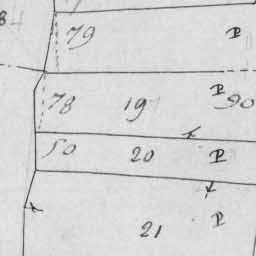 79 P
78 19 P 90
50 20 P
21 P